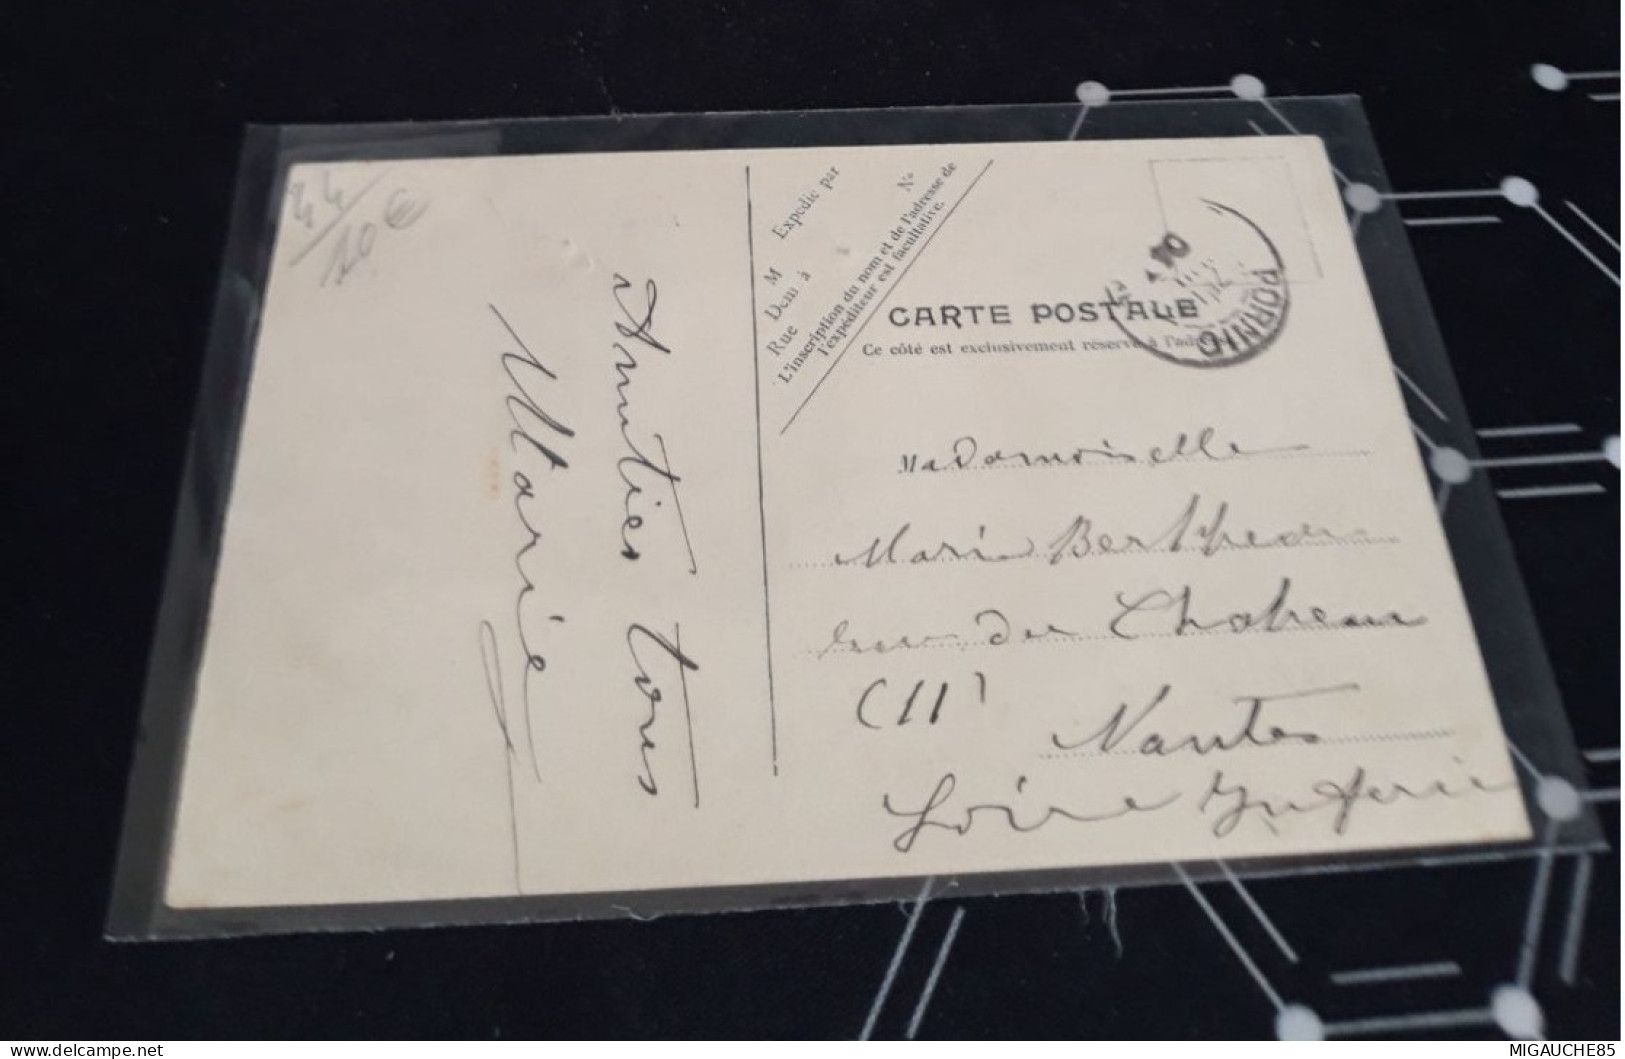 44
10 €
Amitiés à tous
Marie
Expédié par
M
Dem à
Rue
N°
L'inscription du nom et de l'adresse de
l'expéditeur est facultative.
CARTE POSTALE
Ce côté est exclusivement réservé à l'adresse
PORNIC
Mademoiselle
Marie
du Chateau
(11)
Nantes
Loire Inferie
www.delcampe.net
MIGAUCHE85